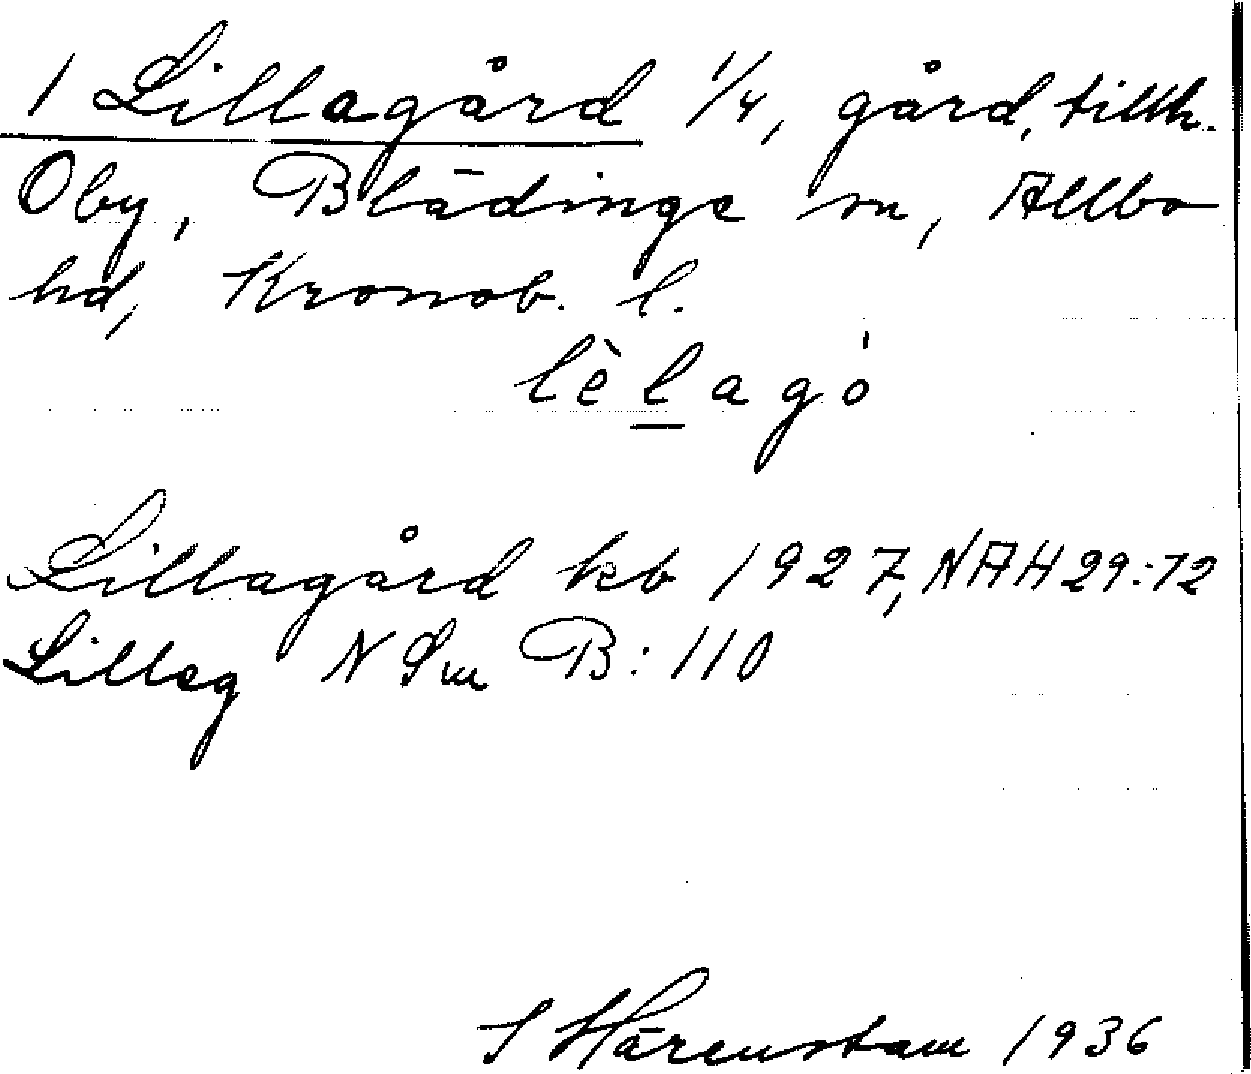 1 Lillagård 1/4, gård, tillh.
Oby, Blädinge sn, Allbo
hd, Kronob. l.
lèlagó
Lillagård kb 1927, NAH 29:72
Lilleg N Sm B: 110
S Härenstam 1936